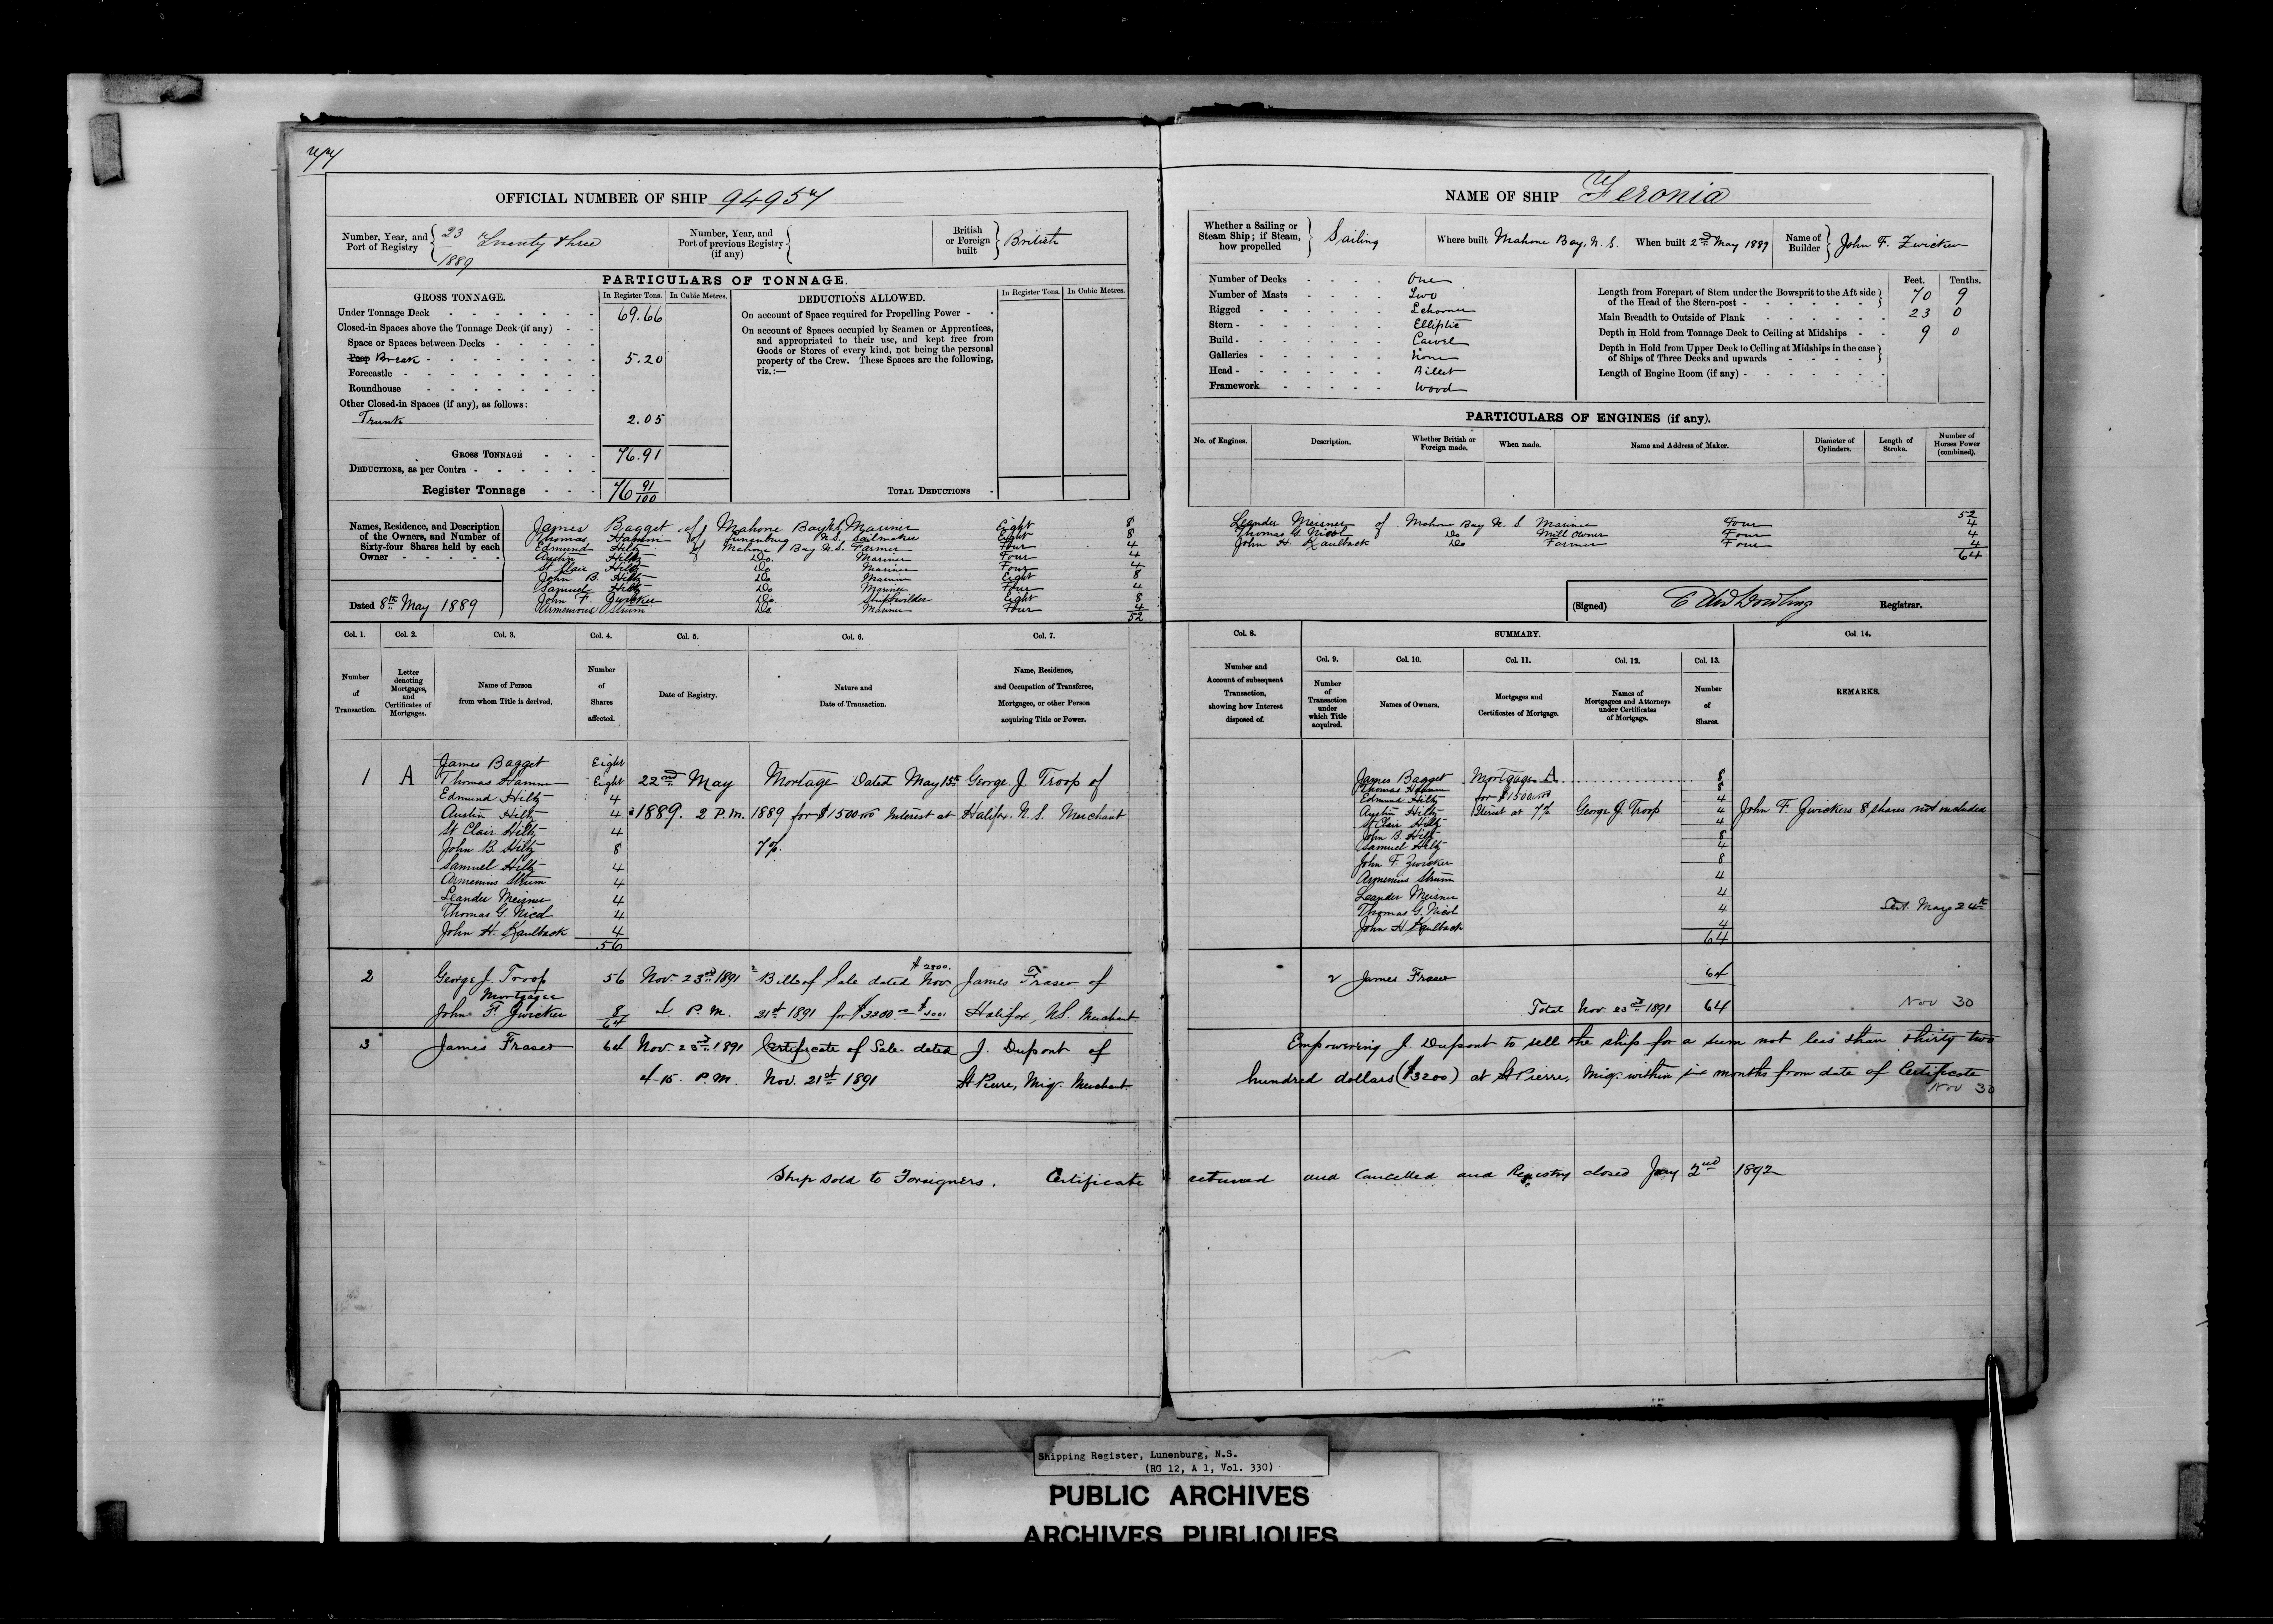 77
OFFICIAL NUMBER OF SHIP 94957
Number, Year, and Port of Registry { 23 Twenty three 1889
Number, Year, and Port of previous Registry (if any) {
British or Foreign built } British
PARTICULARS OF TONNAGE.
GROSS TONNAGE. In Register Tons. In Cubic Metres.
DEDUCTIONS ALLOWED. In Register Tons. In Cubic Metres.
Under Tonnage Deck 69.66
Closed-in Spaces above the Tonnage Deck (if any)
Space or Spaces between Decks
Poop Break 5.20
Forecastle
Roundhouse
Other Closed-in Spaces (if any), as follows:
Trunk 2.05
GROSS TONNAGE 76.91
DEDUCTIONS, as per Contra
Register Tonnage 76 91/100
On account of Space required for Propelling Power
On account of Spaces occupied by Seamen or Apprentices,
and appropriated to their use, and kept free from
Goods or Stores of every kind, not being the personal
property of the Crew. These Spaces are the following,
viz.:—
TOTAL DEDUCTIONS
Names, Residence, and Description
of the Owners, and Number of
Sixty-four Shares held by each
Owner
James Bagget of Mahone Bay N.S. Mariner Eight 8
Thomas Hamm of Lunenburg N.S. Sailmaker Eight 8
Edmund Hiltz of Mahone Bay N.S. Farmer Four 4
Austin Hiltz Do. Mariner Four 4
St Clair Hiltz Do Mariner Four 4
John B. Hiltz Do Mariner Eight 8
Samuel Hiltz Do Mariner Four 4
John F. Zwicker Do. Shipbuilder Eight 8
Armenious Strum Do Mariner Four 4
52
Dated 8th May 1889
Col. 1. Col. 2. Col. 3. Col. 4. Col. 5. Col. 6. Col. 7.
Number of Transaction.
Letter denoting Mortgages, and Certificates of Mortgages.
Name of Person from whom Title is derived.
Number of Shares affected.
Date of Registry.
Nature and Date of Transaction.
Name, Residence, and Occupation of Transferee, Mortgagee, or other Person acquiring Title or Power.
James Bagget Eight
1 A Thomas Hamm Eight 22nd May Mortage Dated May 15th George J Troop of
Edmund Hiltz 4
Austin Hiltz 4 1889. 2 P.m. 1889 for $1500 00 Interest at Halifax N. S. Merchant
St Clair Hiltz 4
John B. Hiltz 8 7%.
Samuel Hiltz 4
Armenius Strum 4
Leander Meisner 4
Thomas G. Nicol 4
John H. Kaulback 4
56
2 George J. Troop 56 Nov. 23rd 1891 Bills of Sale dated Nov. $2800. James Fraser of
Mortgagee
John F. Zwicker 8 4 P.M. 21st 1891 for $3200 Halifax, N.S. Merchant
64
3 James Fraser 64 Nov. 23rd 1891 Certificate of Sale dated J. Dupont of
4-15 P.M. Nov. 21st 1891 St Pierre, Miq. Merchant
Ship sold to Foreigners. Certificate
NAME OF SHIP Feronia
Whether a Sailing or Steam Ship; if Steam, how propelled } Sailing
Where built Mahone Bay, N. S.
When built 2nd May 1889
Name of Builder } John F. Zwicker
Number of Decks One
Number of Masts Two
Rigged Schooner
Stern Elliptic
Build Carvel
Galleries None
Head Billet
Framework Wood
Feet. Tenths.
Length from Forepart of Stem under the Bowsprit to the Aft side
of the Head of the Stern-post 70 9
Main Breadth to Outside of Plank 23 0
Depth in Hold from Tonnage Deck to Ceiling at Midships 9 0
Depth in Hold from Upper Deck to Ceiling at Midships in the case
of Ships of Three Decks and upwards
Length of Engine Room (if any)
PARTICULARS OF ENGINES (if any).
No. of Engines. Description. Whether British or Foreign made. When made. Name and Address of Maker. Diameter of Cylinders. Length of Stroke. Number of Horses Power (combined).
52
Leander Meisner of Mahone Bay N. S Mariner Four 4
Thomas G. Nicol of Do Mill Owner Four 4
John H. Kaulback Do Farmer Four 4
64
(Signed) Registrar.
Col. 8. SUMMARY. Col. 14.
Col. 9. Col. 10. Col. 11. Col. 12. Col. 13.
Number and Account of subsequent Transaction, showing how Interest disposed of.
Number of Transaction under which Title acquired.
Names of Owners.
Mortgages and Certificates of Mortgage.
Names of Mortgagees and Attorneys under Certificates of Mortgage.
Number of Shares.
REMARKS.
James Bagget Mortgage A 8
Thomas Hamm 8
Edmund Hiltz for $1500 00 4
Austin Hiltz Interest at 7% George J. Troop 4 John F. Zwickers 8 shares not included
St Clair Hiltz 4
John B. Hiltz 8
Samuel Hiltz 4
John F. Zwicker 8
Armenius Strum 4
Leander Meisner 4
Thomas G. Nicol 4 May 24th
John H Kaulback 4
64
2 James Fraser 64
Total Nov. 23rd 1891 64 Nov 30
Empowering J. Dupont to sell the ship for a sum not less than thirty two
hundred dollars ($3200) at St Pierre, Miq. within six months from date of Certificate
Nov 30
returned and Cancelled and Registry closed Jany 2nd 1892
Shipping Register, Lunenburg, N.S.
(RG 12, A 1, Vol. 330)
PUBLIC ARCHIVES
ARCHIVES PUBLIQUES